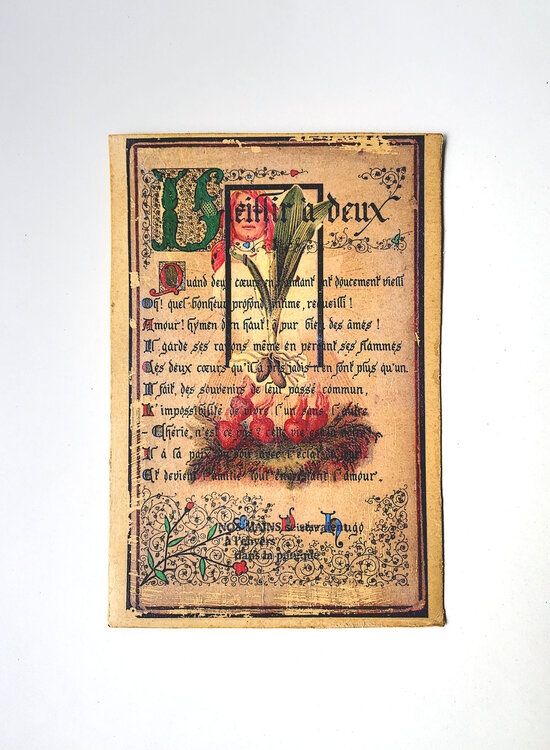 Vieillir à deux
Quand deux cœurs en s'aimant ont doucement vieilli
Oh! quel bonheur profond, intime, recueilli!
Amour! hymen d'en haut! ô pur lien des âmes!
Il garde ses rayons même en perdant ses flammes
Ces deux cœurs qu'il a pris jadis n'en font plus qu'un.
Il fait, des souvenirs de leur passé commun,
L'impossibilité de vivre l'un sans l'autre
- Chérie, n'est-ce pas? cette vie est la nôtre
Il a la paix du soir avec l'éclat du jour
Et devient l'amitié tout en restant l'amour.
NOS MAINS
à l'envers
dans la